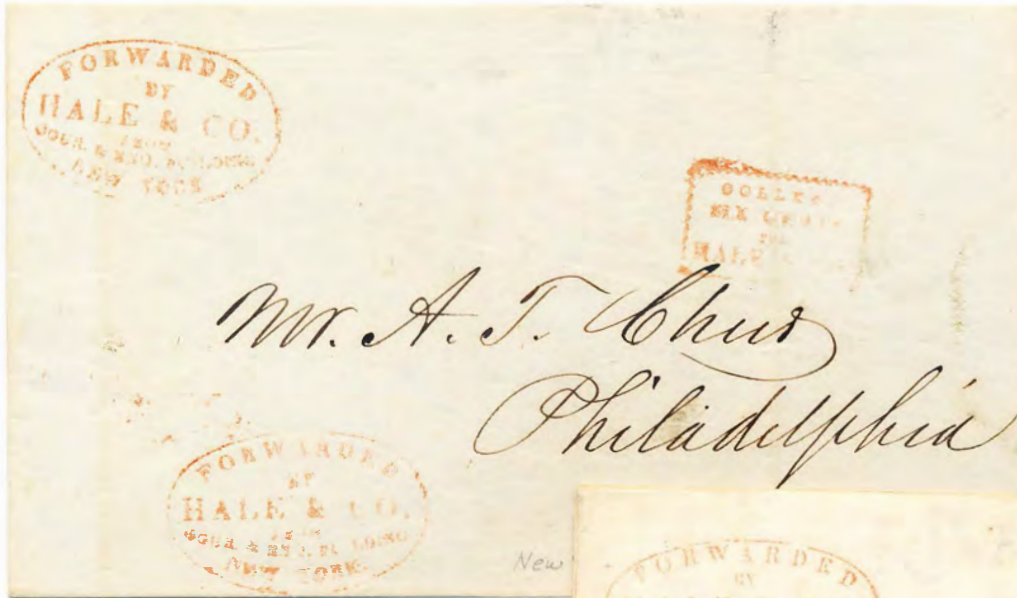 FORWARDED
BY
HALE & CO.
FROM
COUR. & ENQ. BUILDING
NEW YORK
COLLECT
SIX CENTS
FOR
HALE
Mr. A. T.
Philadelphia
FORWARDED
BY
HALE & CO.
FROM
COUR. & ENQ. BUILDING
NEW YORK
New
FORWARDED
BY